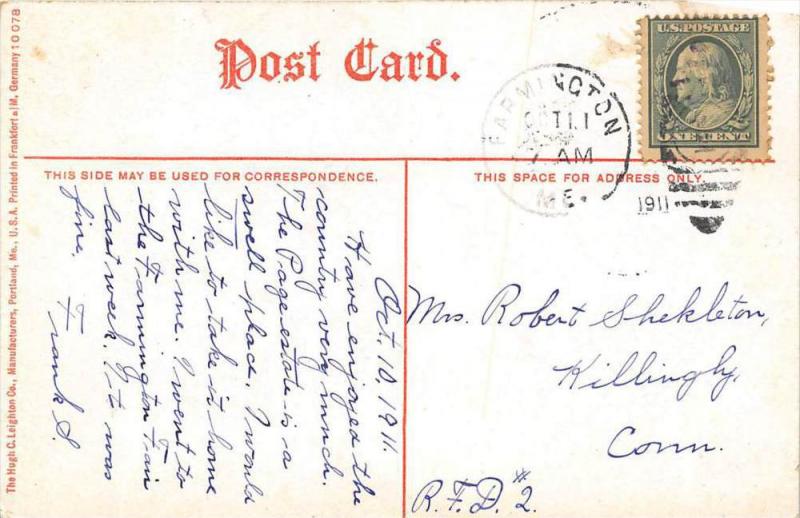 Post Card.
THIS SIDE MAY BE USED FOR CORRESPONDENCE.
THIS SPACE FOR ADDRESS ONLY.
The Hugh C. Leighton Co., Manufacturers, Portland, Me., U.S.A. Printed in Frankfort a/M. Germany 10078
U.S. POSTAGE
ONE CENT
FARMINGTON
OCT 11
7 AM
ME.
1911
Oct. 10, 1911.
Have enjoyed the
country very much.
The Page estate is a
swell place. I would
like to take it home
with me. I went to
the Farmington Fair
last week. It was
fine. Frank S.
Mrs. Robert Shekleton,
Killingly,
Conn.
R.F.D. #2.